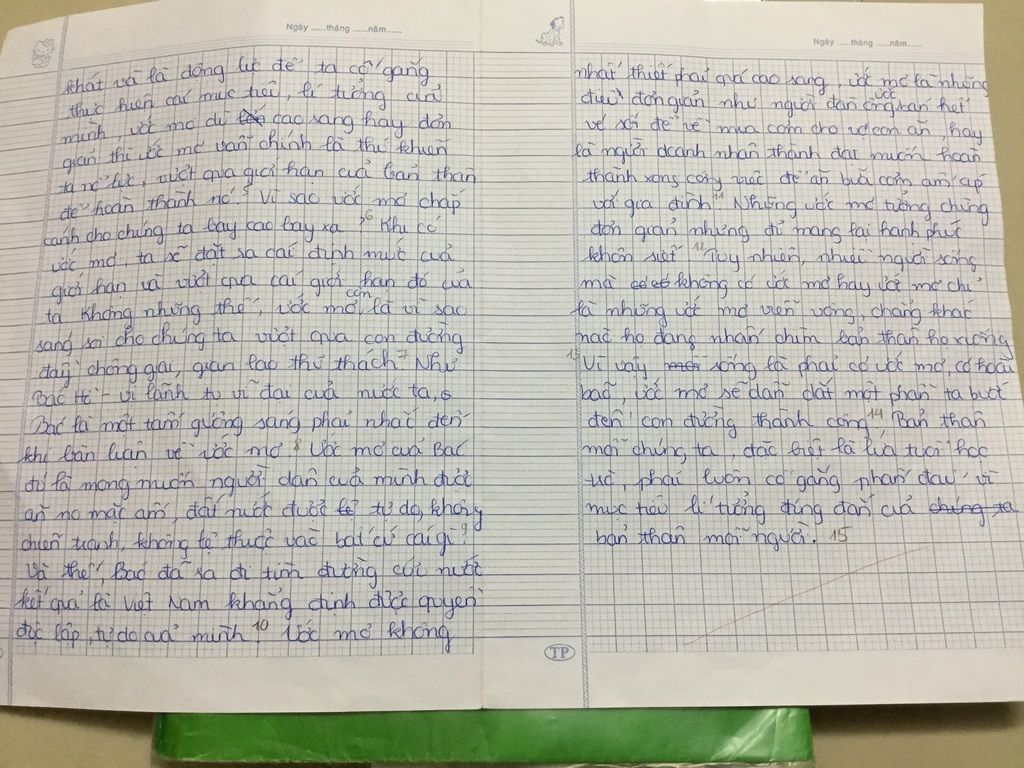 Ngày ......tháng ......năm......
khát và là động lực để ta cố gắng
thực hiện cái mục tiêu, lí tưởng của
mình, ước mơ dù cao sang hay đơn
giản thì ước mơ vẫn chính là thứ khiến
ta nỗ lực, vượt qua giới hạn của bản thân
để hoàn thành nó. 5 Vì sao ước mơ chắp
cánh cho chúng ta bay cao bay xa ? 6 Khi có
ước mơ, ta sẽ đặt ra các định mức của
giới hạn và vượt qua cái giới hạn đó của
ta Không những thế, ước mơ còn là vì sao
sáng soi cho chúng ta vượt qua con đường
đầy chông gai, gian lao thử thách 7 Như
Bác Hồ - vị lãnh tụ vĩ đại của nước ta,
Bác là một tấm gương sáng phải nhắc đến
khi bàn luận về ước mơ 8 Ước mơ của Bác
đó là mong muốn người dân của mình được
ăn no mặc ấm, đất nước được tự do, không
chiến tranh, không lệ thuộc vào bất cứ cái gì 9
Và thế, Bác đã ra đi tìm đường cứu nước
kết quả là Việt Nam khẳng định được quyền
độc lập, tự do của mình 10 Ước mơ không
Ngày ......tháng ......năm......
nhất thiết phải quá cao sang, ước mơ là những
điều đơn giản như người dân ước bán hết
vé số để về mua cơm cho vợ con ăn hay
là người doanh nhân thành đạt muốn hoàn
thành xong công việc để ăn bữa cơm ấm cúp
với gia đình 11 Những ước mơ tưởng chừng
đơn giản nhưng đủ mang lại hạnh phúc
khôn siết 12 Tuy nhiên, nhiều người sống
mà không có ước mơ hay ước mơ chỉ
là những ước mơ viễn vông, chẳng khác
nào họ đang nhấn chìm bản thân họ xuống
13 Vì vậy sống là phải có ước mơ, có hoài
bão, ước mơ sẽ dẫn dắt một phần ta bước
đến con đường thành công 14 Bản thân
mỗi chúng ta, đặc biệt là lứa tuổi học
trò, phải luôn cố gắng phấn đấu vì
mục tiêu lí tưởng đúng đắn của chúng ta
bản thân mỗi người. 15
TP